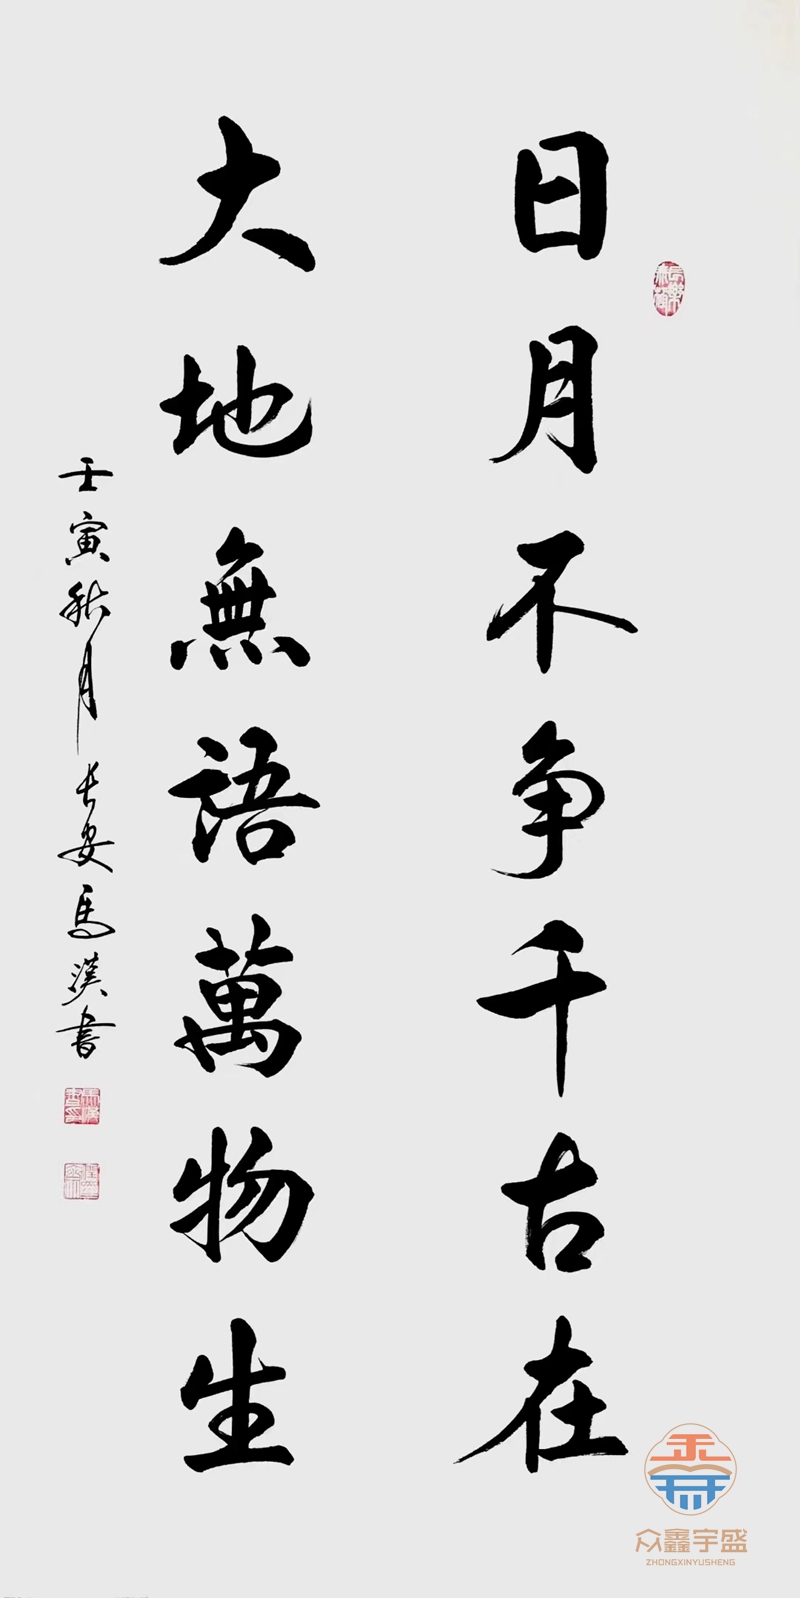 日月不争千古在
大地無語萬物生
壬寅秋月長安馬漢書
众鑫宇盛
ZHONGXINYUSHENG